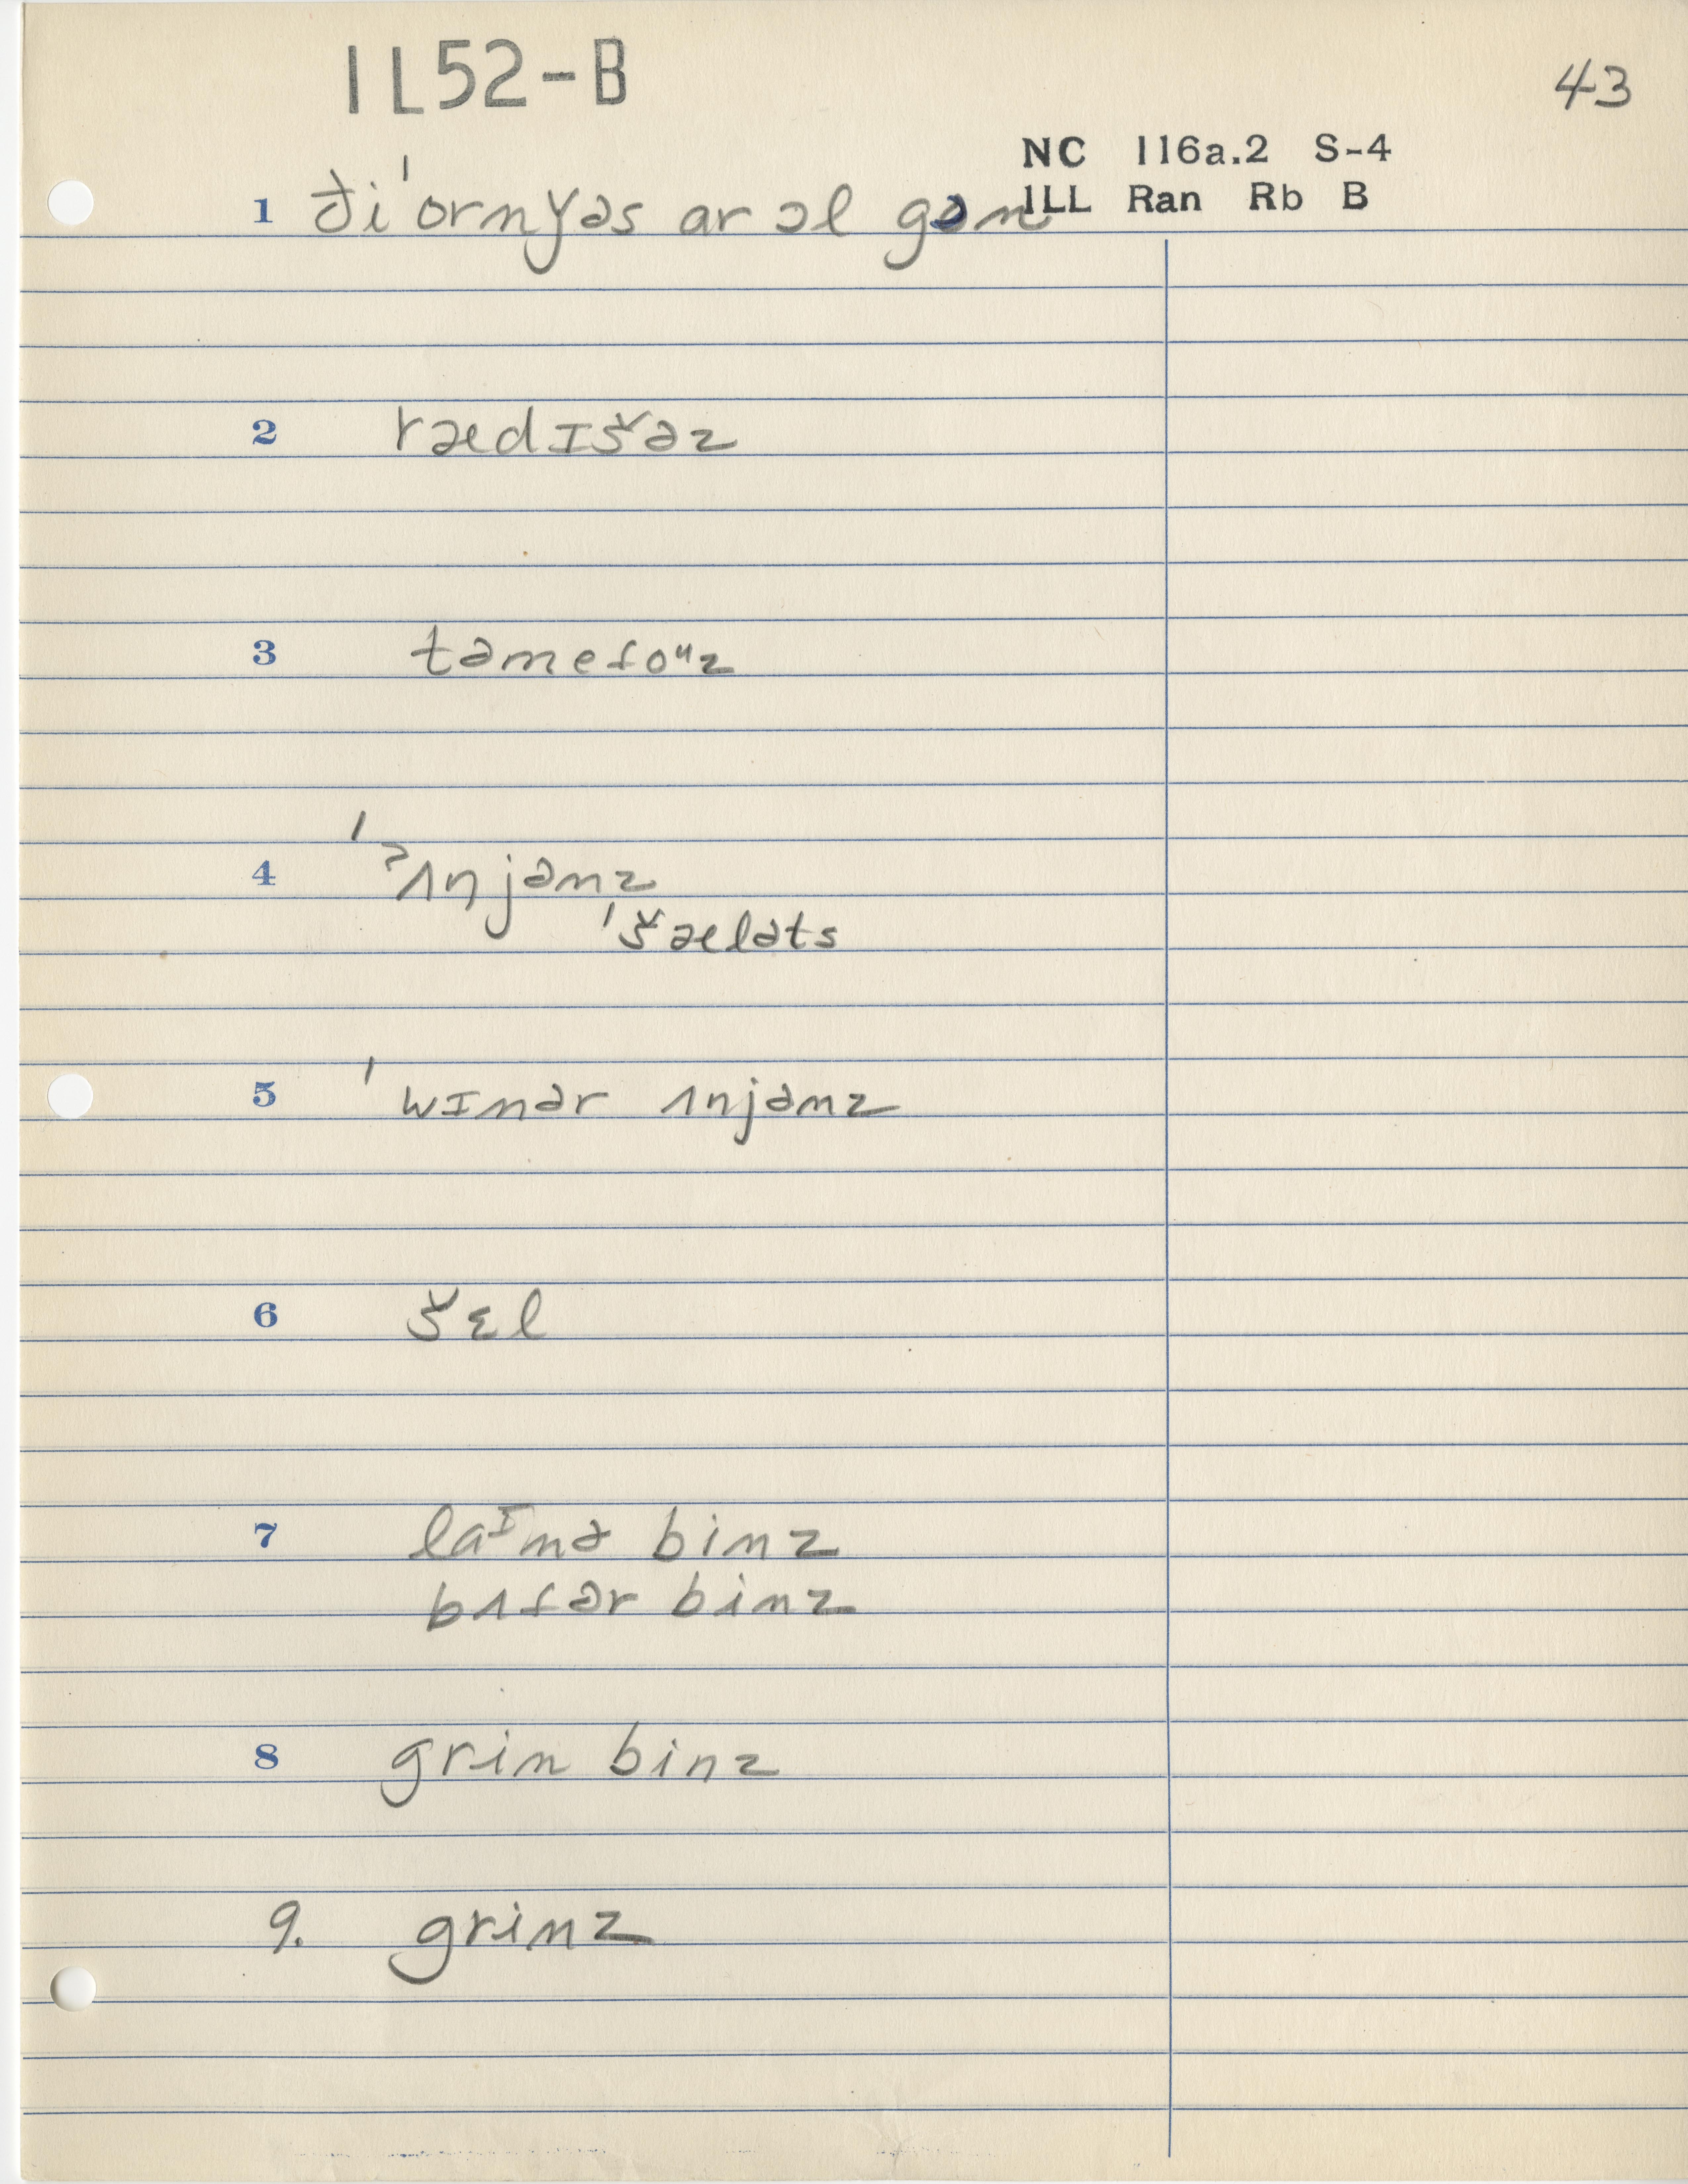 IL52-B
43
NC 116a.2 S-4
ILL Ran Rb B
1 ði ˈornǰəs ar ɔl gɔn
2 rædɪšəz
3 təmeɾoᵘz
4 ˈʔʌnjənz
ˈšæləts
5 ˈwɪnər ʌnjənz
6 šɛl
7 laᴵmə binz
bʌɾər binz
8 grin binz
9. grinz